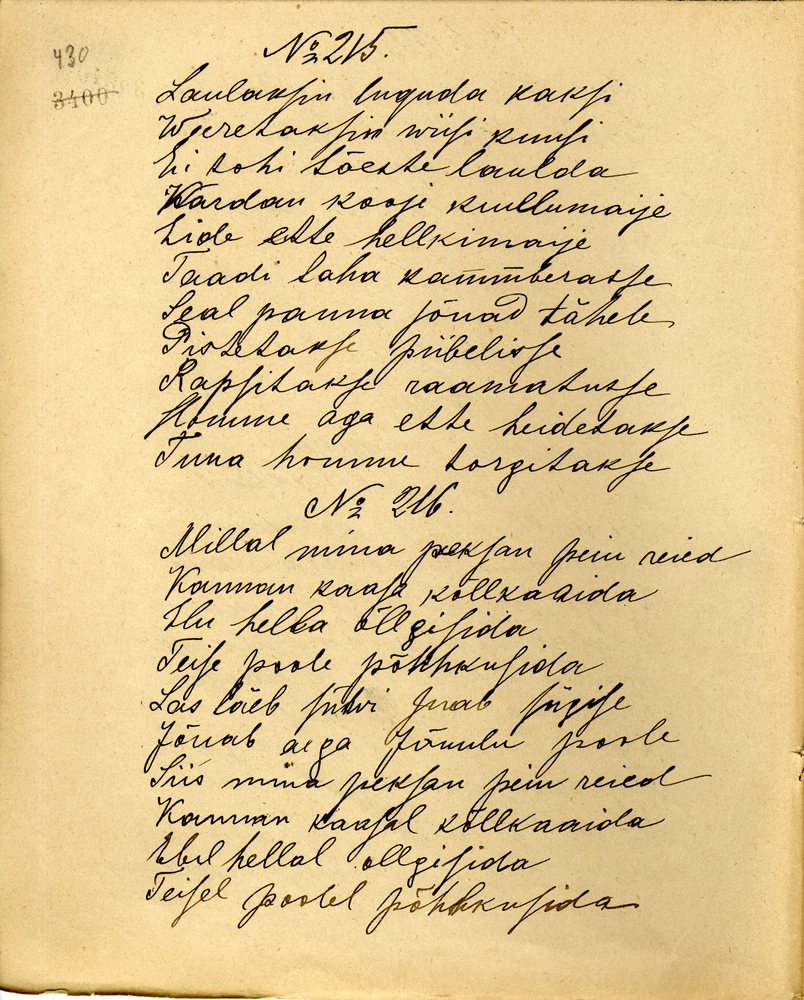 430
3400
№ 215.
Laulaksin luguda kaksi
Weeretaksin wiisi kuusi
Ei tohi tõeste laulda
Kardan kooje kuullumaije
Eide ette hellkimaije
Taadi taha kammberasse
Seal panna jõuad tähele
Pistetakse piibelisse
Rapsitakse raamatusse
Homme aga ette heidetakse
Tuna homme torgitakse
№ 216.
Millal mina peksan pein reied
Kannan kaasa kõllkaaida
Elu hella õllgisida
Teise poole põhhkusida
Las läeb suwi saab sügise
Jõuab aega Jõuulu poole
Siis mina peksan pein reied
Kannan kaasal kõllkaaida
Ebel hellal ollgisida
Teisel poolel põhhkusida